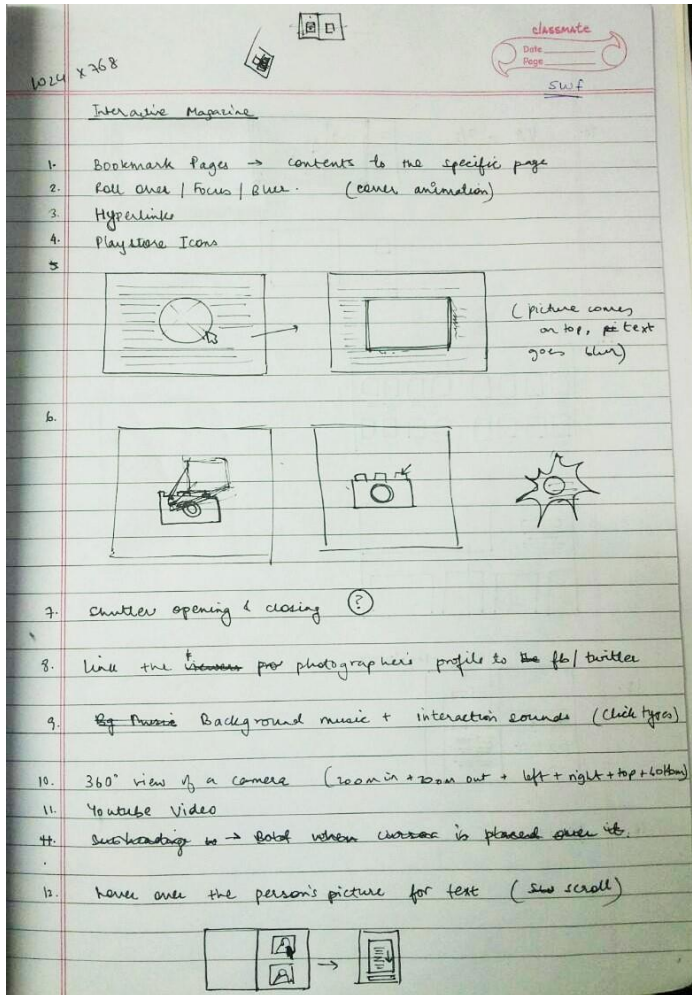 classmate
Date
Page
1024 x 768
SWF
Interactive Magazine
1. Bookmark Pages → contents to the specific page
2. Roll over / Focus / Blur. (cover animation)
3. Hyperlinks
4. Playstore Icons
5
(picture comes
on top, text
goes blur)
6.
7. Shutter opening & closing ?
8. Link the photographer's profile to fb/twitter
9. Bg Music Background music + interaction sounds (Click types)
10. 360° view of a camera (zoom in + zoom out + left + right + top + bottom)
11. Youtube Video
11. Subheading → Bold when cursor is placed over it.
12. hover over the person's picture for text (scroll)